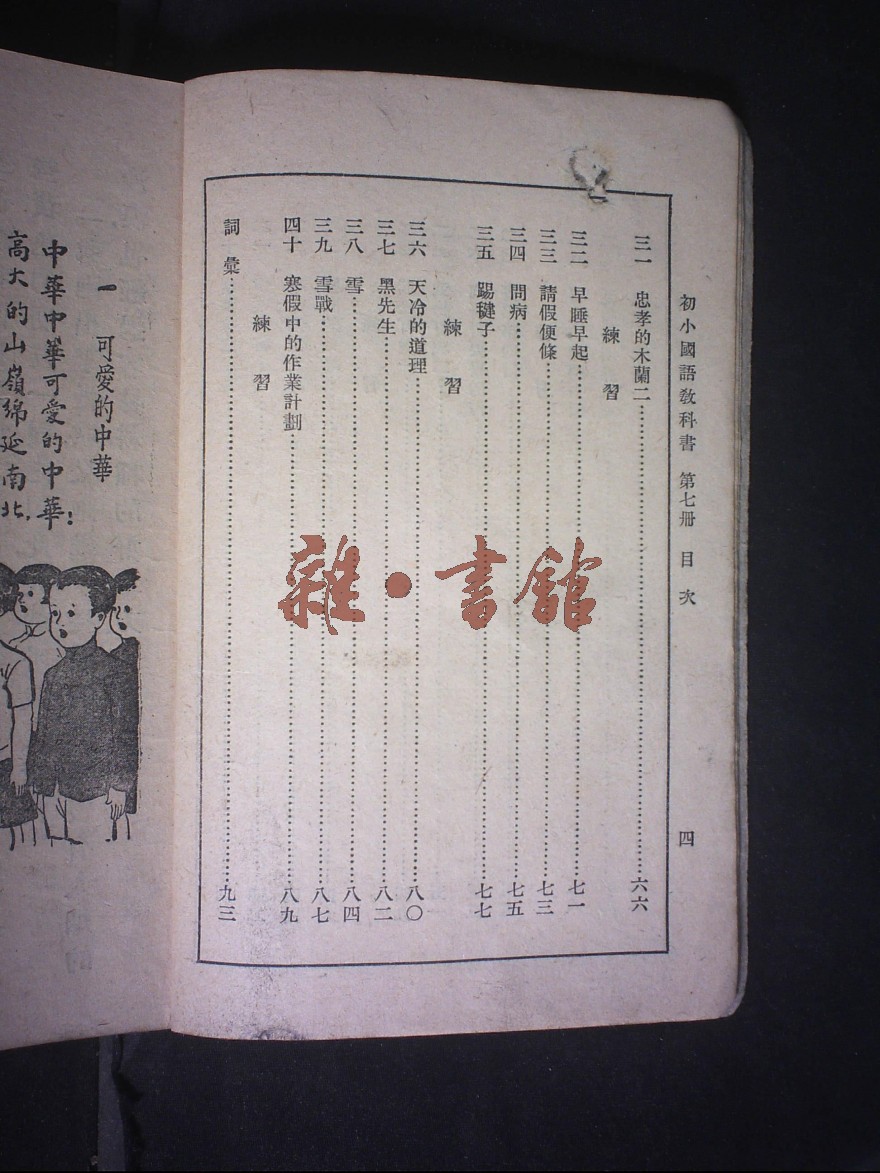 初小國語教科書 第七冊 目次 四
三一 忠孝的木蘭二……六六
練習
三二 早睡早起……七一
三三 請假便條……七三
三四 問病……七五
三五 踢毽子……七七
練習
三六 天冷的道理……八〇
三七 黑先生……八二
三八 雪……八四
三九 雪戰……八七
四十 寒假中的作業計劃……八九
練習
詞彙……九三
雜·書館
一 可愛的中華
中華中華可愛的中華!
高大的山嶺綿延南北,